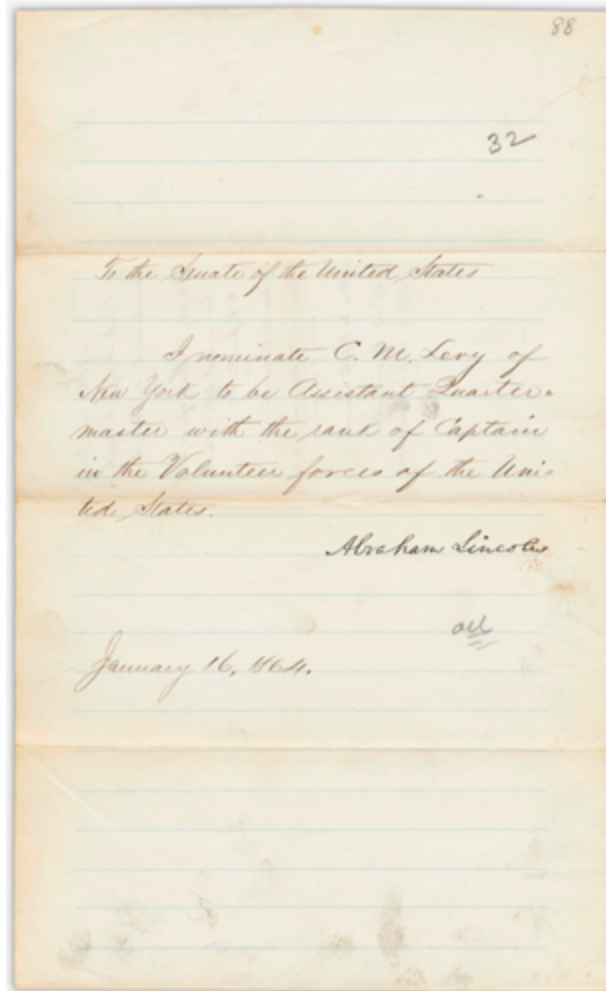 88
32
To the Senate of the United States
I nominate C. M. Levy of
New York to be Assistant Quarter-
master with the rank of Captain
in the Volunteer forces of the Uni-
ted States.
Abraham Lincoln
January 16, 1864.